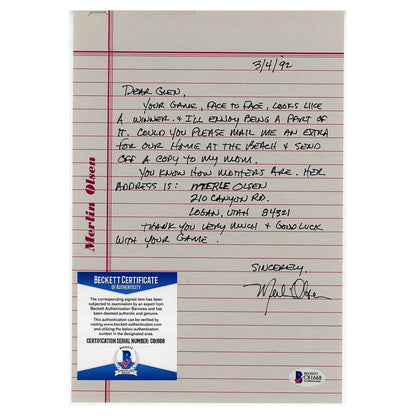 3/4/92
DEAR GLEN,
YOUR GAME, FACE TO FACE, LOOKS LIKE
A WINNER & I'LL ENJOY BEING A PART OF
IT. COULD YOU PLEASE MAIL ME AN EXTRA
FOR OUR HOME AT THE BEACH & SEND
OFF A COPY TO MY MOM.
YOU KNOW HOW MOTHERS ARE. HER
ADDRESS IS: MERLE OLSEN
210 CANYON RD.
LOGAN, UTAH 84321
THANK YOU VERY MUCH & GOOD LUCK
WITH YOUR GAME.
SINCERELY,
Merlin Olsen
Merlin Olsen
BECKETT CERTIFICATE
OF AUTHENTICITY
The corresponding signed item has been
subjected to examination by an expert from
Beckett Authentication Services and found
to be authentic.
This authentication can be verified by
visiting www.beckett-authentication.com
and utilizing the below authentication
number in the online verification area.
CERTIFICATION SERIAL NUMBER: C81668
BECKETT
C81668